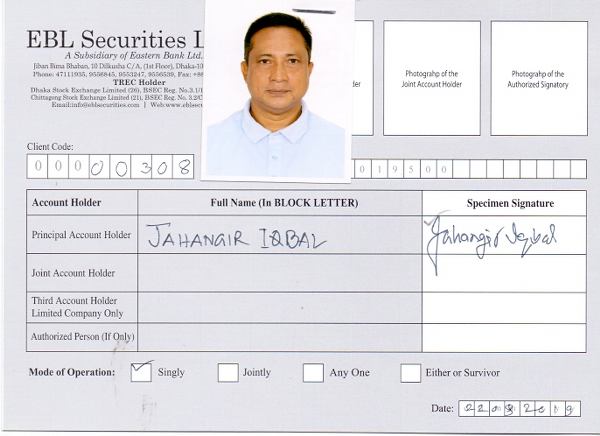 EBL Securities L
A Subsidiary of Eastern Bank Ltd.
Jiban Bima Bhaban, 10 Dilkusha C/A, (1st Floor), Dhaka-10
Phone: 47111935, 9556845, 9553247, 9556539, Fax: +88
TREC Holder
Dhaka Stock Exchange Limited (26), BSEC Reg. No.3.1/
Chittagong Stock Exchange Limited (21), BSEC Reg. No. 3.2/
Email:info@eblsecurities.com | Web:www.eblsec
der
Photograhp of the
Joint Account Holder
Photograhp of the
Authorized Signatory
Client Code:
0 0 0 0 0 3 0 8
0 1 9 5 0 0
Account Holder Full Name (In BLOCK LETTER) Specimen Signature
Principal Account Holder JAHANGIR IQBAL Jahangir Iqbal
Joint Account Holder
Third Account Holder
Limited Company Only
Authorized Person (If Only)
Mode of Operation: Singly Jointly Any One Either or Survivor
Date: